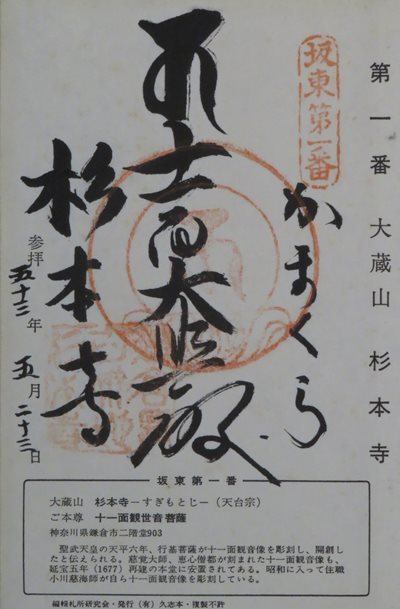 第一番 大蔵山 杉本寺
坂東第一番
かまくら
十一面大悲殿
杉本寺
参拝 五十三年 五月 二十三日
坂東第一番
大蔵山 杉本寺－すぎもとじ－（天台宗）
ご本尊 十一面観世音菩薩
神奈川県鎌倉市二階堂903
聖武天皇の天平六年、行基菩薩が十一面観音像を彫刻し、開創し
たと伝えられる。慈覚大師、恵心僧都が刻まれた十一面観音像も、
延宝五年（1677）再建の本堂に安置されてある。昭和に入って住職
小川慈海師が自ら十一面観音像を彫刻している。
編輯札所研究会・発行（有）久志本・複製不許